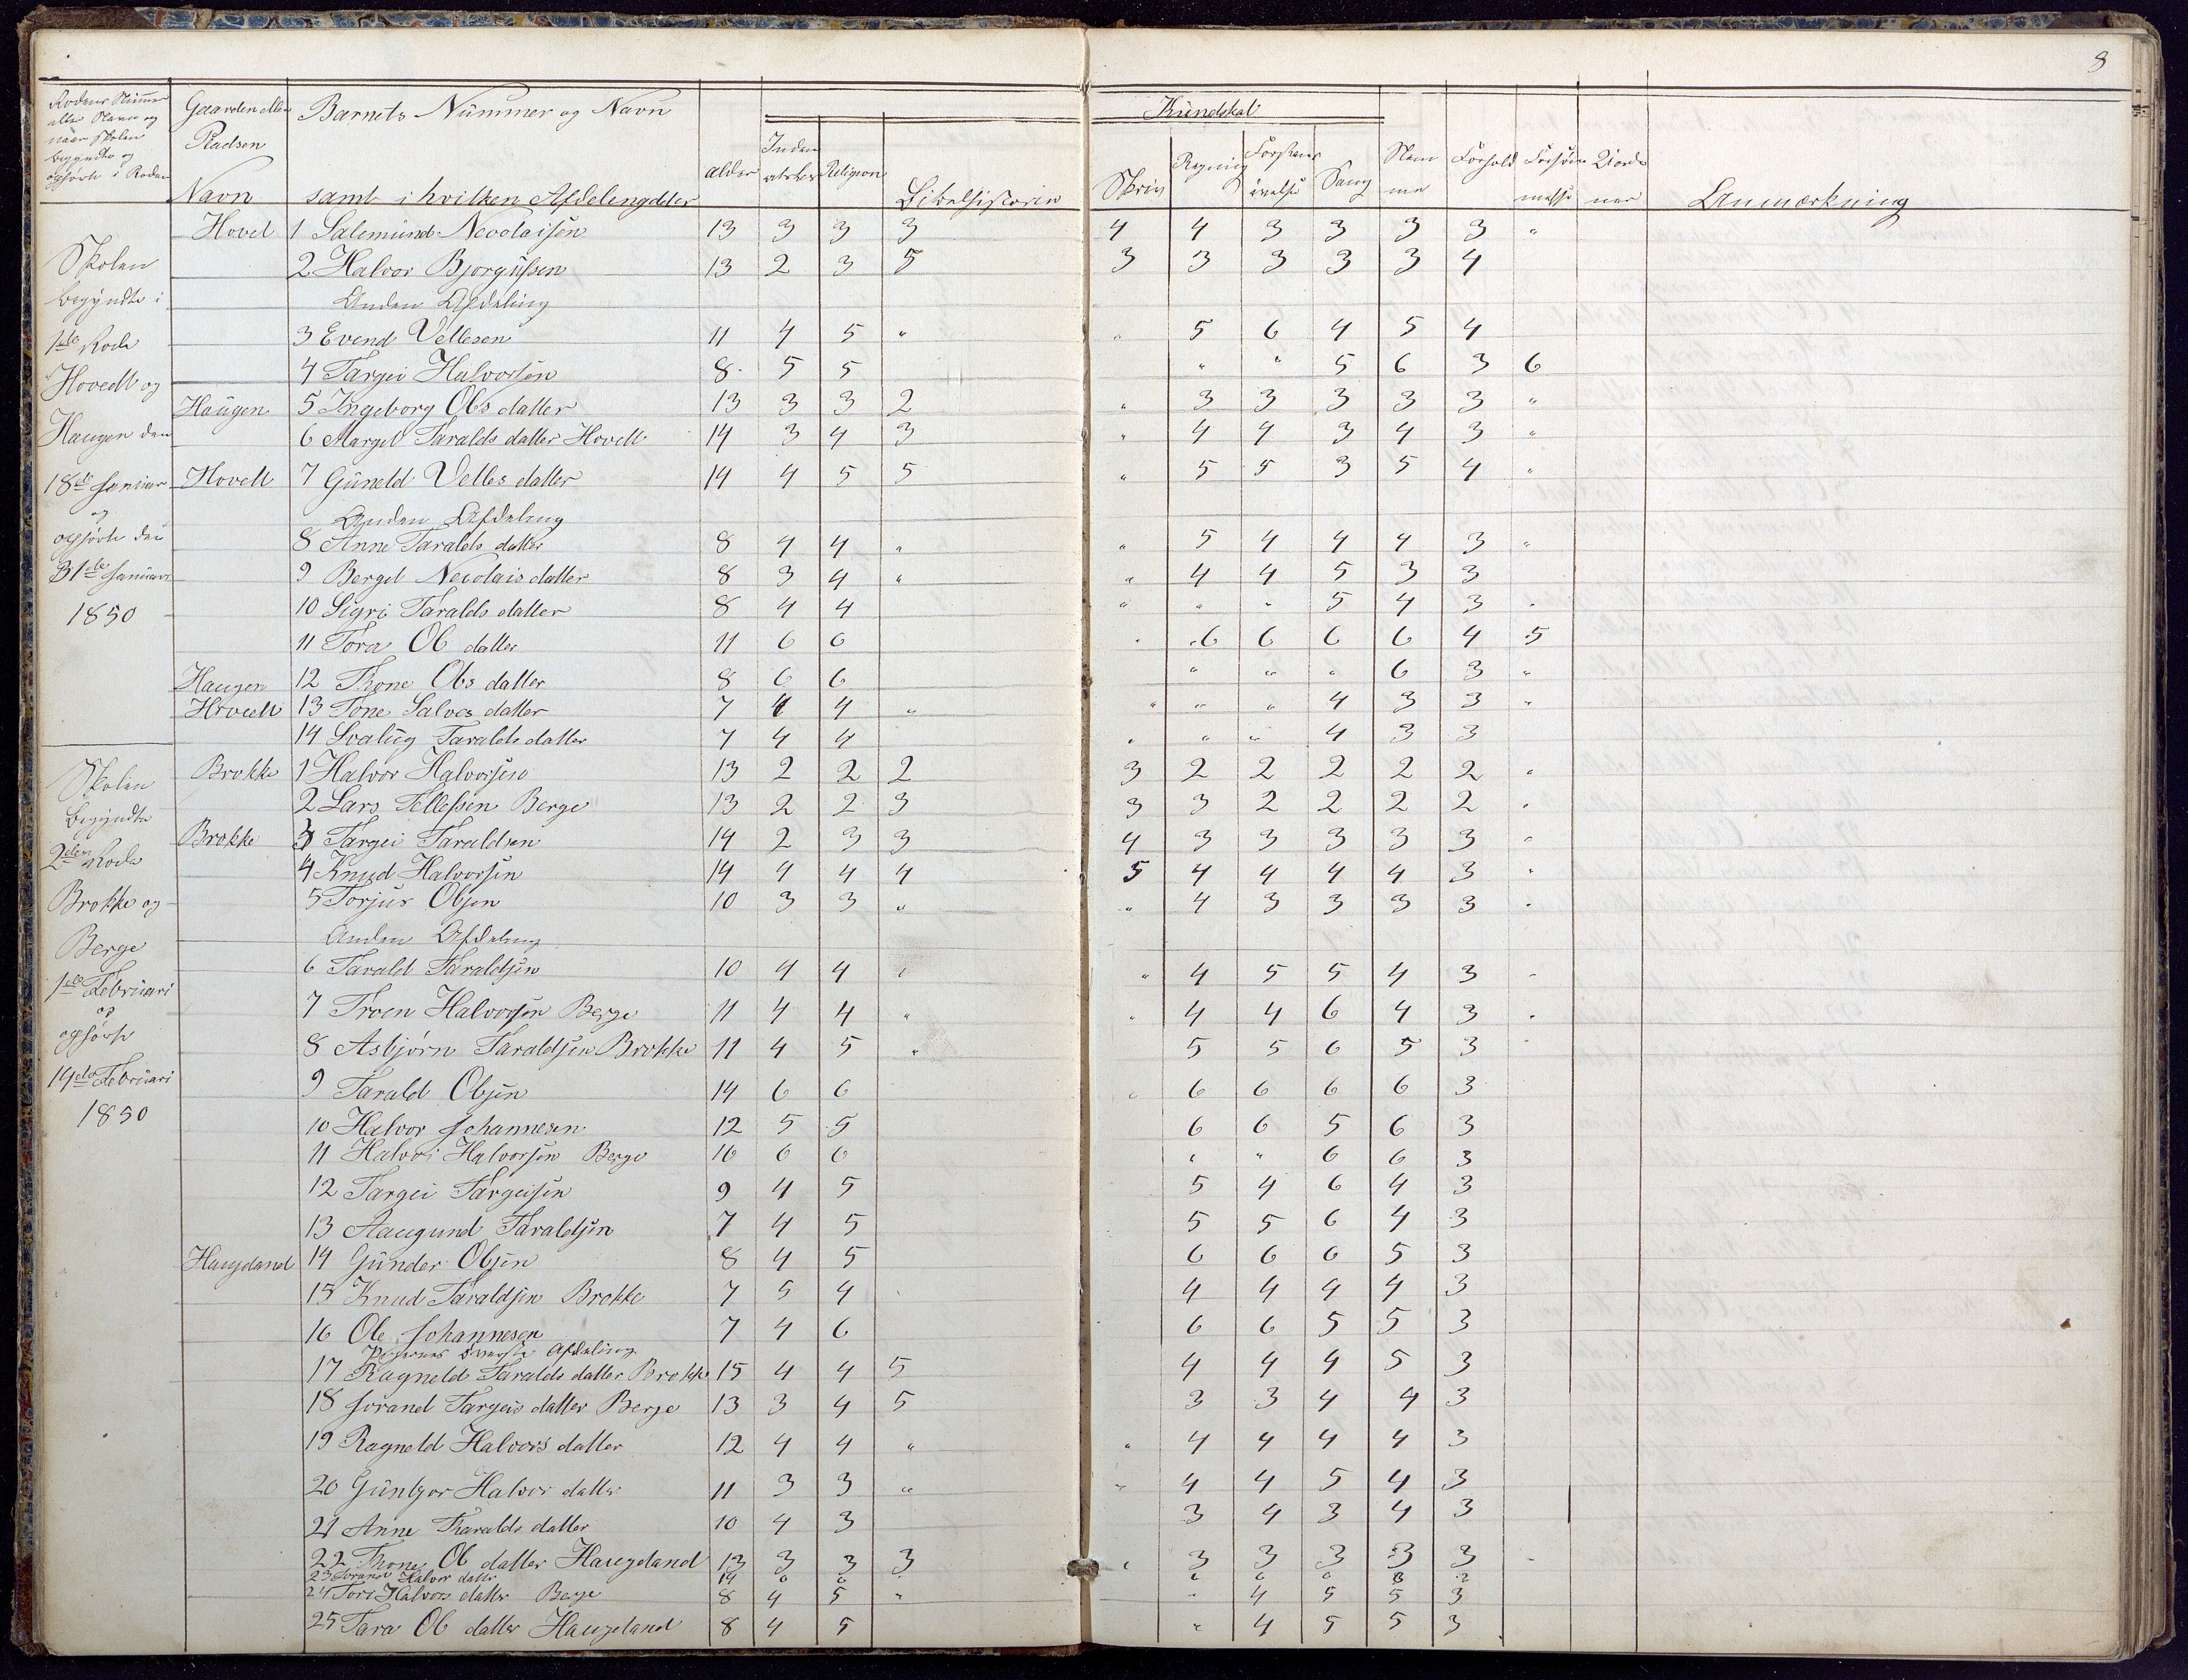 3
Rodens Nummer
eller Navn og
naar Skolen
begyndte og
ophørte i Roden
Gaarden eller
Pladsen
Navn
Barnets Nümmer og Navn
samt i hvilken Afdeleng deler
alder
Inden
Religion
Bibelhistorie
Kündskab
Skriv
Regning
Sang
Nem
me
Forhold
Forsøm
melse
Anmærkning
Skolen
begyndte i
1ste Rode
Hovedt og
Haugen den
18de Januar
og
ophørte den
31de Januari
1850
Hovet 1 Salemund Necolaisen 13 3 3 3 4 4 3 3 3 3 "
2 Halvor Bjorgufsen 13 2 3 5 3 3 3 3 3 4
Anden Afdeling
3 Evend Vellesen 11 4 5 " " 5 6 4 5 4
4 Targei Halvorsen 8 5 5 " " 5 6 3 6
Haugen 5 Ingeborg Obs datter 13 3 3 2 " 3 3 3 3 3 "
6 Margit Taralds datter Hovett 14 3 4 3 " 4 4 3 4 3 "
Hovett 7 Güneld Velles datter 14 4 5 5 " 5 5 3 5 4 "
Anden Afdeling
8 Anne Taralds datter 8 4 4 " " 5 4 4 4 3 "
9 Berget Necolais datter 8 3 4 " " 4 4 5 3 3
10 Sigri Taralds datter 8 4 4 " " " 5 4 3 "
11 Tora Ob datter 11 6 6 " 6 6 6 6 4 5
Haugen 12 Thone Obs datter 8 6 6 " " " 6 3 "
Hovett 13 Tone Salves datter 7 4 4 " " " " 4 3 3 "
14 Svalüg Taralds datter 7 4 4 " " " 4 3 3
Skolen
begyndte
2den Rode
Brokke og
Berge
1ste Februari
og
ophørte
14de Februari
1850
Brokke 1 Halvor Halvorsen 13 2 2 2 3 2 2 2 2 2 "
2 Lars Tellefsen Berge 13 2 2 3 3 3 2 2 2 2 "
Brokke 3 Targei Taraldsen 14 2 3 3 4 3 3 3 3 3 "
4 Knud Halvorsen 14 4 4 4 5 4 4 4 4 3 "
5 Torjus Obsen 10 3 3 " " 4 3 3 3 3 "
Anden Afdeling
6 Tarald Taraldsen 10 4 4 " " 4 5 5 4 3 "
7 Troen Halvorsen Berge 11 4 4 " " 4 4 6 4 3 "
8 Asbjørn Taraldsen Brokke 11 4 5 " 5 5 6 5 3
9 Tarald Obsen 14 6 6 " 6 6 6 6 3
10 Halvor Johannesen 12 5 5 6 6 5 6 3
11 Halvor Halvorsen Berge 16 6 6 " " 6 6 3
12 Targei Targeisen 9 4 5 5 4 6 4 3
13 Aaugund Taraldsen 7 4 5 5 5 6 4 3
Haugeland 14 Günder Obsen 8 4 5 6 6 6 5 3
15 Knud Taraldsen Brokke 7 5 4 4 4 4 4 3
16 Ole Johannesen 7 4 6 6 6 5 5 3
Pigernes øverste Afdeling
17 Ragneld Taralds datter Brokke 15 4 4 5 4 4 4 5 3
18 Jorand Targeis datter Berge 13 3 4 5 3 3 4 4 3
19 Ragneld Halvors datter 12 4 4 " " 4 4 4 4 3
20 Günbjør Halvor datter 11 3 3 " " 4 4 5 4 3
21 Anne Tharalds datter 10 4 3 3 4 3 4 3
22 Thone Ob datter Haugeland 13 3 3 3 " 3 3 3 3 3 "
23 Jorand Halvor datter 14 6 6
24 Tore Halvors datter Berge 8 4 5 " " 4 5 5 3
25 Tara Ob datter Haugeland 8 4 5 " 4 5 5 3